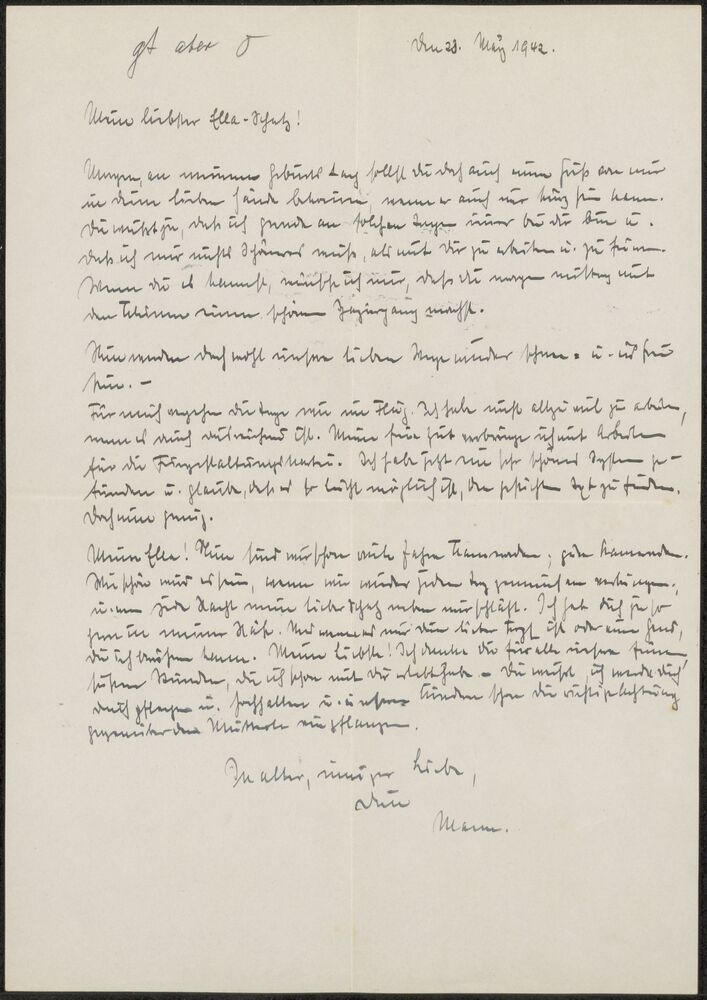 gt aber
Den 28. März 1942.
Mein liebster Ella-Schatz!
Morgen, an meinem Geburtstag sollst du doch auch einen Gruß von mir
in deine lieben Hände bekommen, wenn er auch nur kurz sein kann.
Du weißt ja, daß ich gerade an solchen Tagen immer bei dir bin u.
daß ich mir nichts Schöneres weiß, als mit Dir zu arbeiten u. zu feiern.
Wenn du es kannst, wünsche ich mir, daß du morgen mittag mit
den Kleinen einen schönen Spaziergang machst.
Nun werden doch wohl unsere lieben Wege wieder schnee- u. eisfrei
sein. -
Für mich vergehen die Tage wie im Flug. Ich habe nicht allzu viel zu arbeiten,
wenn es auch ausreichend ist. Meine freie Zeit verbringe ich mit Arbeiten
für die. Ich habe jetzt ein sehr schönes System ge-
funden u. glaube, daß es so leicht möglich ist, den zu finden.
Doch nun genug.
Meine Ella! Nun sind wir schon viele Jahre Kameraden; gute Kameraden.
Wie schön wird es sein, wenn wir wieder jeden Tag gemeinsam verbringen,
u. wenn jede Nacht mein lieber Schatz neben mir schläft. Ich hab dich ja so
gern in meiner Nähe. Und wenn es nur dein lieber Kopf ist oder eine Hand,
die ich berühren kann. Meine Liebste! Ich danke dir für alle unsere feinen,
süßen Stunden, die ich schon mit dir erlebt habe. - Du weißt, ich werde dich
auch pflegen u. hochhalten u. in unseren Kindern schon die richtige Achtung
gegenüber den Müttern einpflanzen.
In alter, inniger Liebe,
Dein
Mann.